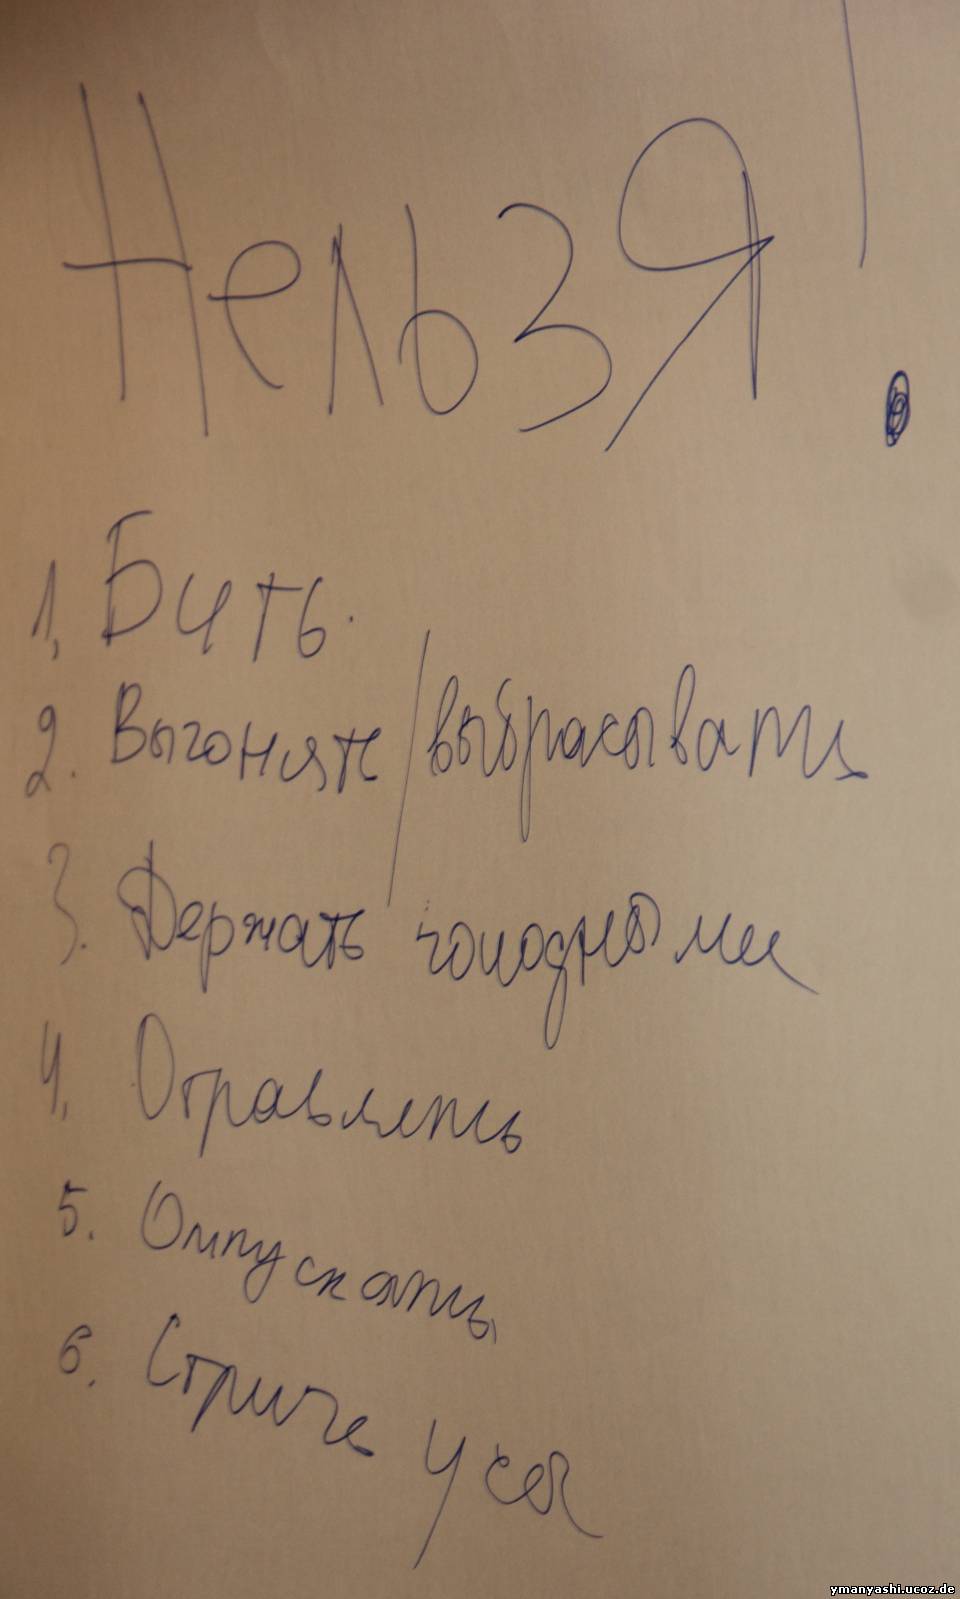 Нельзя!
1. Бить.
2. Выгонять/выбрасывать
3. Держать голодными
4. Отравлять
5. Отпускать
6. Стричь усы
ymanyashi.ucoz.de